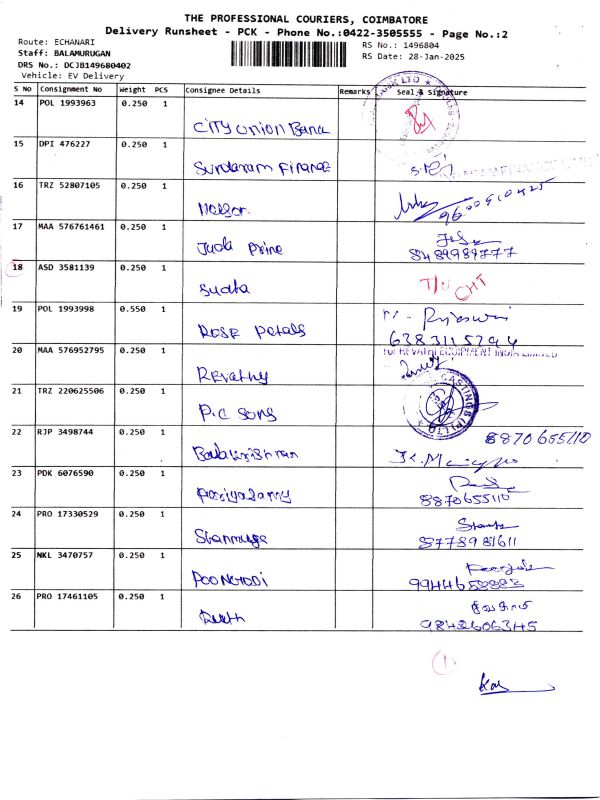 THE PROFESSIONAL COURIERS, COIMBATORE
Delivery Runsheet - PCK - Phone No.:0422-3505555 - Page No.:2
Route: ECHANARI
RS No.: 1496804
Staff: BALAMURUGAN
RS Date: 28-Jan-2025
DRS No.: DCJB149680402
Vehicle: EV Delivery
S No Consignment No Weight PCS Consignee Details Remarks Seal & Signature
14 POL 1993963 0.250 1
City Union Bank
15 DPI 476227 0.250 1
Sundaram Finance
16 TRZ 52807105 0.250 1
9600510425
17 MAA 576761461 0.250 1
Judi Prine
8489989777
18 ASD 3581139 0.250 1
Sudha T/U CHT
19 POL 1993998 0.550 1
Rose Petals
6383115294
20 MAA 576952795 0.250 1
For REVATHI EQUIPMENT INDIA LIMITED
Revathy
21 TRZ 220625506 0.250 1
P.C Sons
22 RJP 3498744 0.250 1
8870655110
Balakrishnan
23 PDK 6076590 0.250 1
Pariyasamy
8870655110
24 PRO 17330529 0.250 1
Shanmuga
8778981611
25 NKL 3470757 0.250 1
Poongodi
9944658883
26 PRO 17461105 0.250 1
9842606345
1